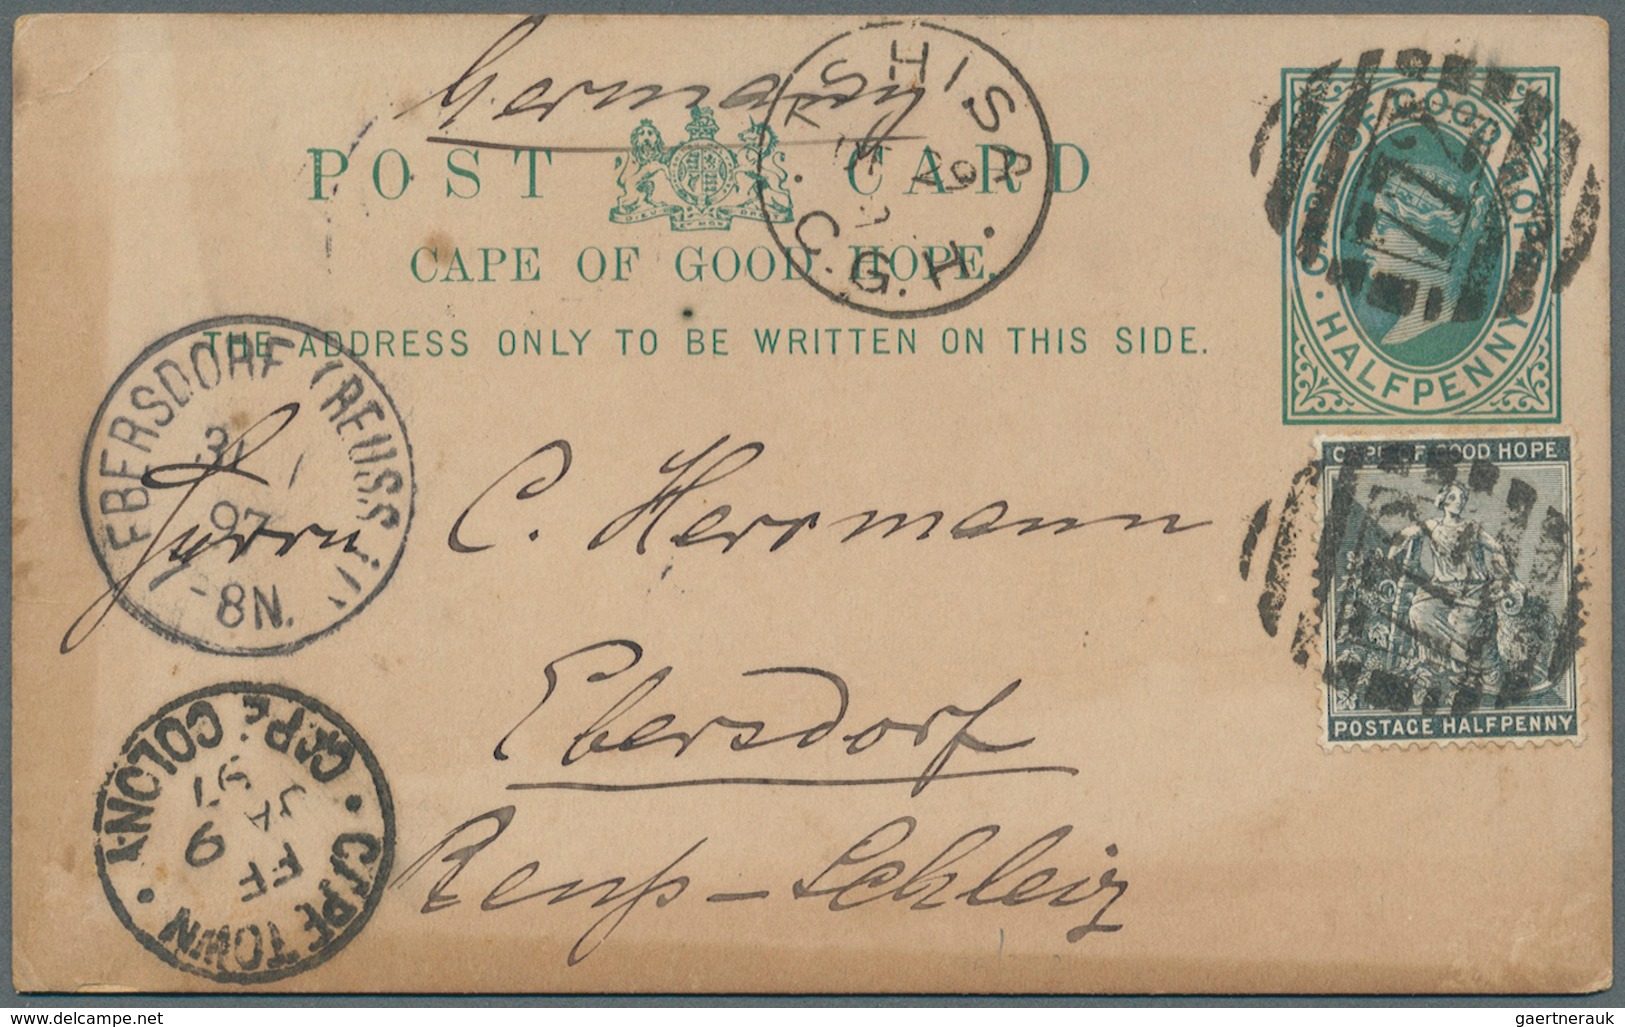 Germany
POST CARD
CAPE OF GOOD HOPE.
THE ADDRESS ONLY TO BE WRITTEN ON THIS SIDE.
CAPE OF GOOD HOPE
HALFPENNY
772
TSHISA
29
C.G.H.
EBERSDORF (REUSS
31 1
97
-8N.
Herrn C. Herrmann
Ebersdorf
Reuß-Schleiz
CAPE OF GOOD HOPE
POSTAGE HALFPENNY
CAPE TOWN
CAPE COLONY
FF
9
JA
97
delcampe.net
gaertnerauk